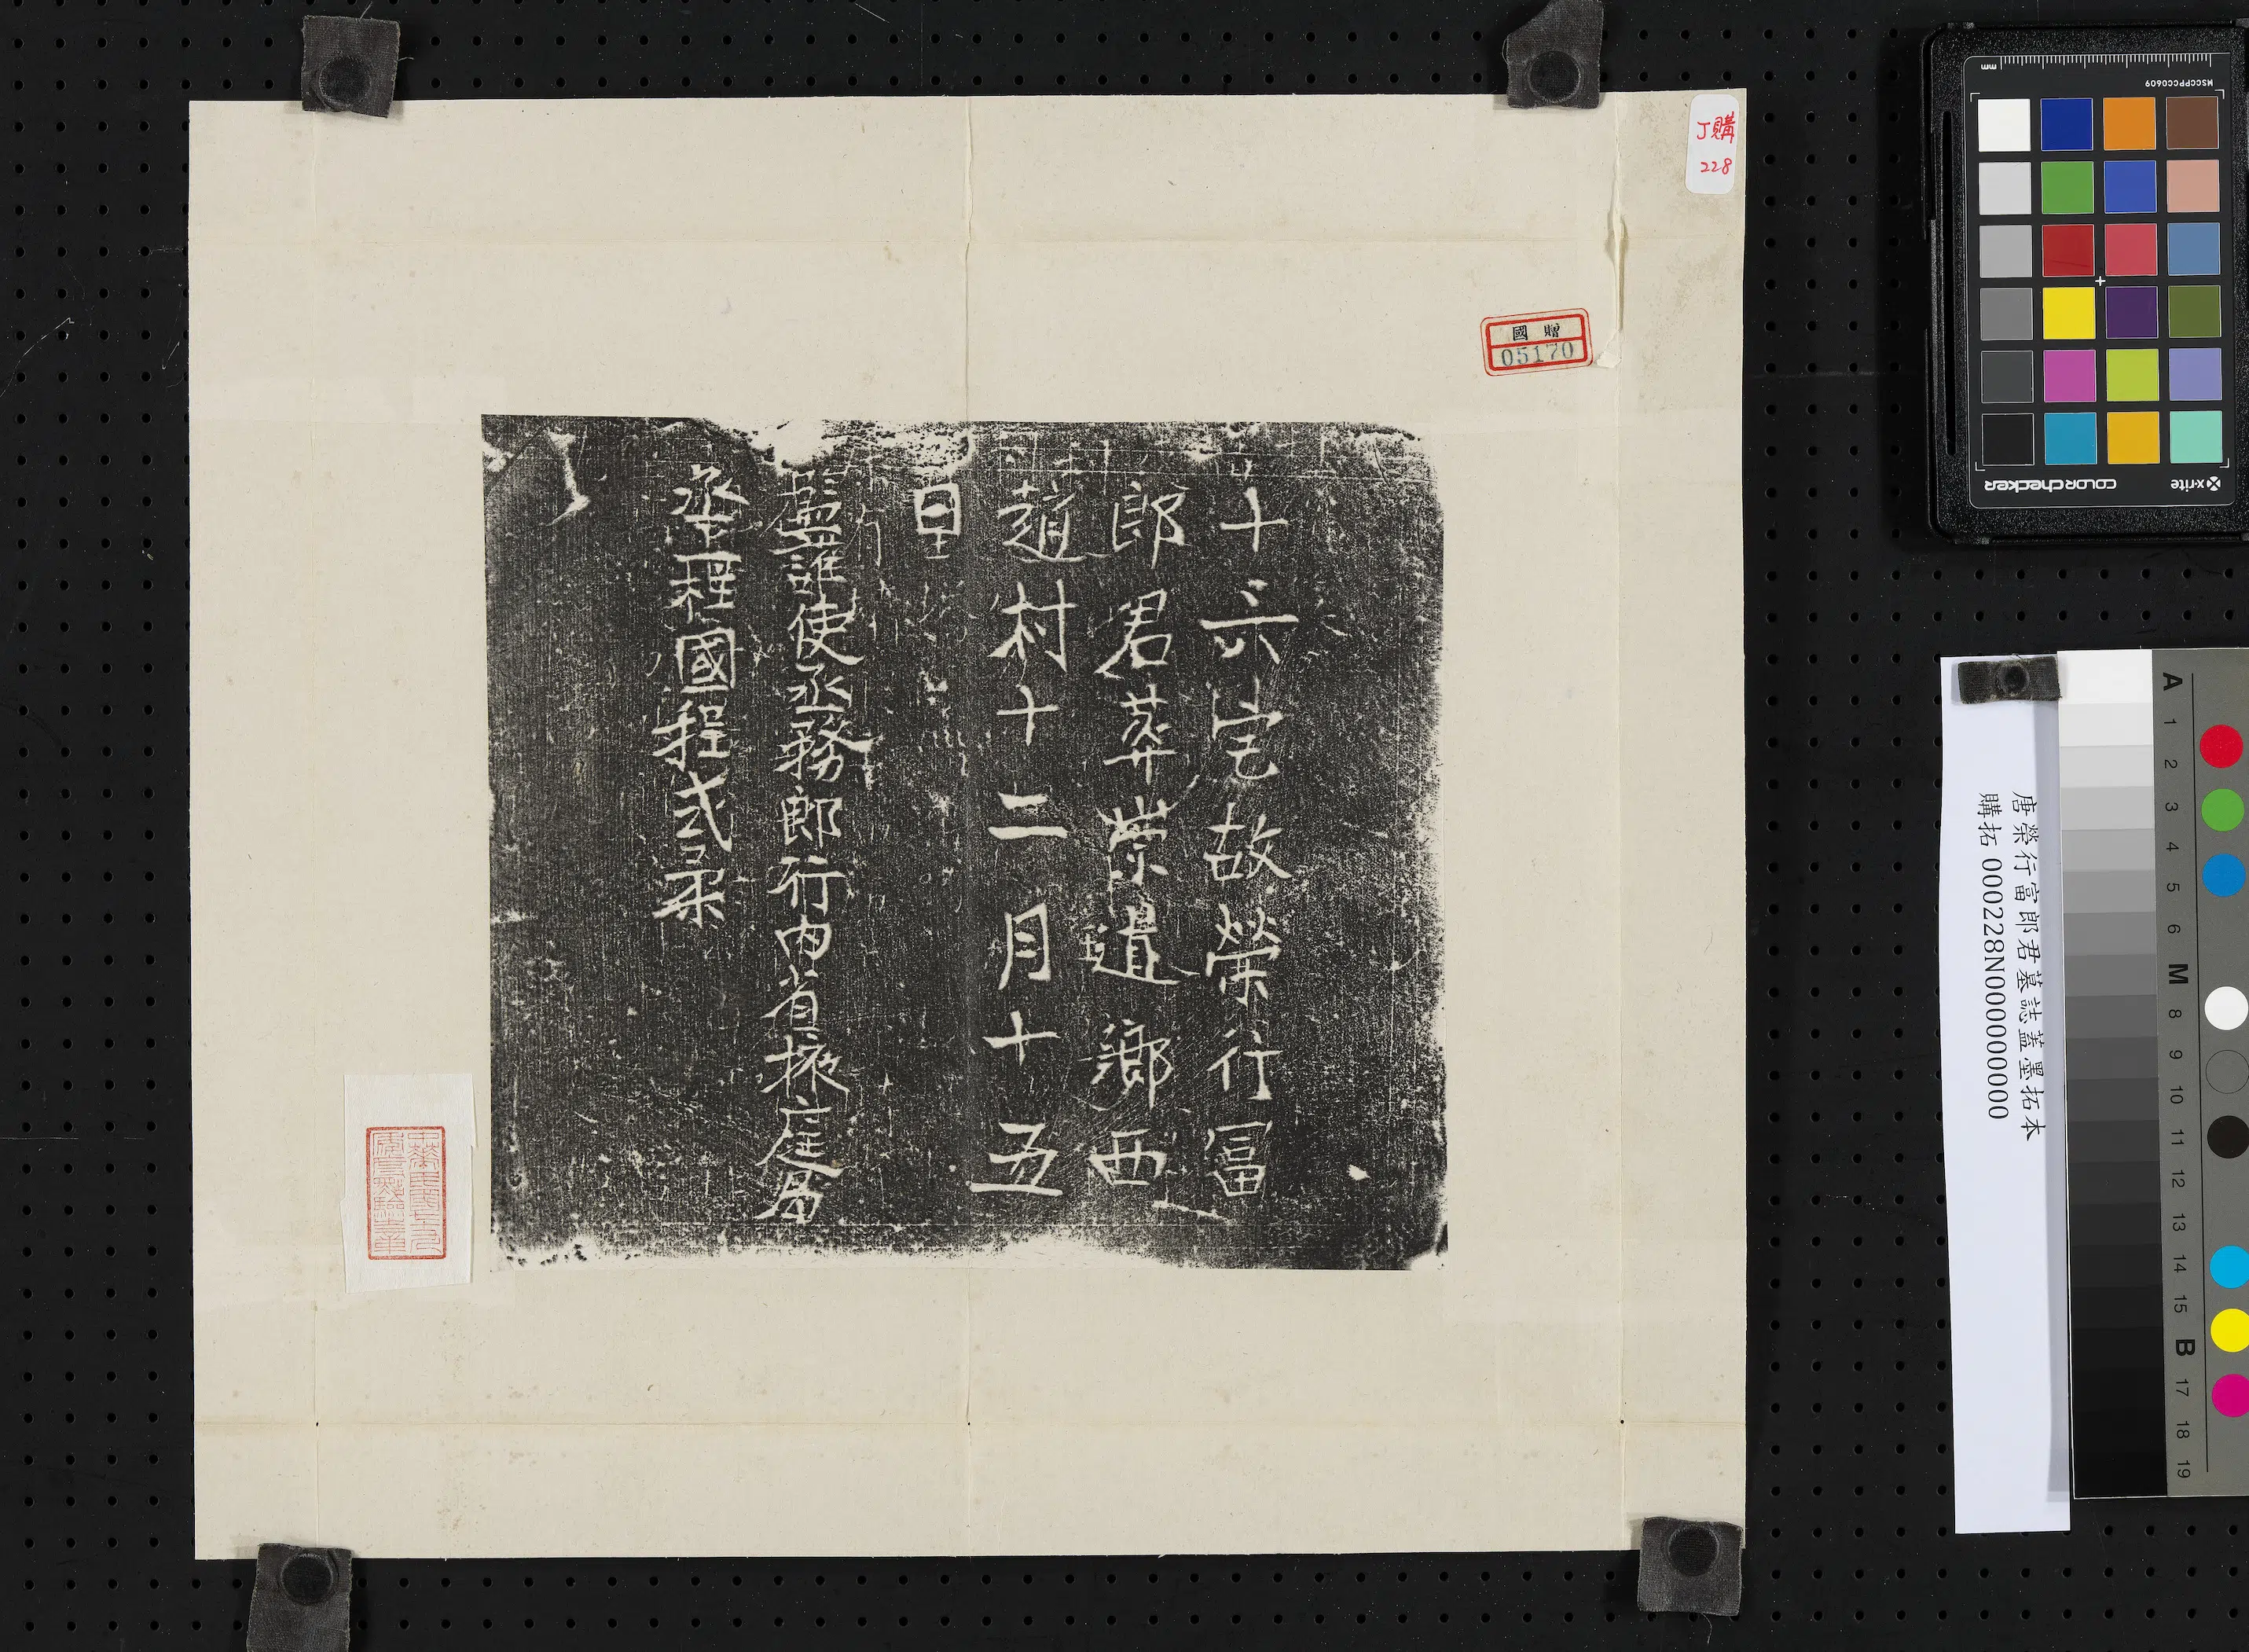 J購
228
國贈
05170
十六宅故榮行冨
郎君葬崇道鄉西
趙村十二月十五
日
監護使丞務郎行內省掖庭局
丞程國程式柔
唐榮行富郎君墓誌蓋墨拓本
購拓 000228N000000000
mm
MSCCPPCC0609
x-rite
colorchecker
A
1
2
3
4
5
6
M
8
9
10
11
12
13
14
15
B
17
18
19